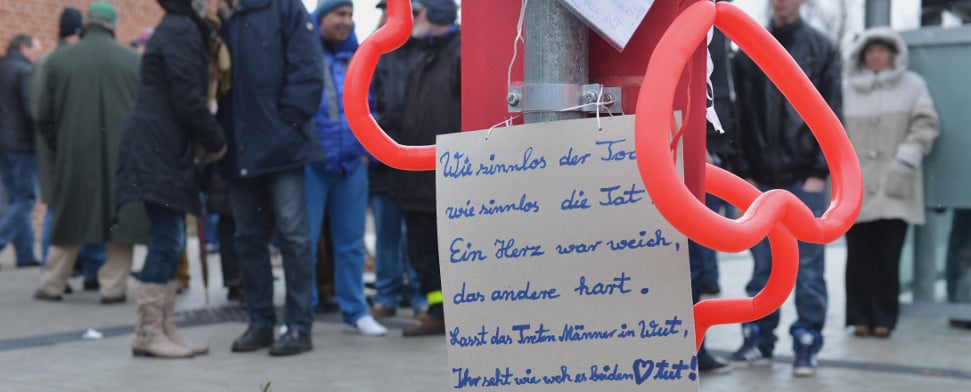 Wie sinnlos der Tod
wie sinnlos die Tat.
Ein Herz war weich,
das andere hart.
Lasst das Treten Männer in Wut,
Ihr seht wie weh es beiden ♡ tut!